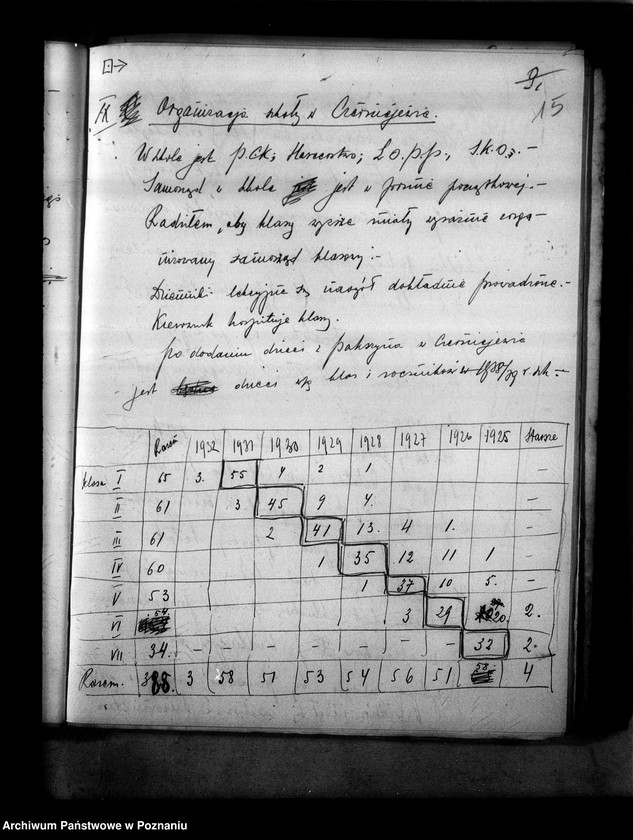 9.
15
IX Organizacja szkoły w Czerniejewie.
W szkole jest P.C.K; Harcerstwo; L.O.P.P., S.K.O. –
Samorząd w szkole jest w formie początkowej. –
Radziłem, aby klasy wyższe miały wyraźnie zorga-
nizowany samorząd klasowy. –
Dzienniki lekcyjne są naogół dokładnie prowadzone. –
Kierownik hospituje klasy.
Po dodaniu dzieci z Pakszyna w Czerniejewie
jest dzieci wg klas i roczników w 1938/39 r. szk –
Razem 1932 1931 1930 1929 1928 1927 1926 1925 Starsze
klasa I 65 3. 55 4 2 1 –
II 61 3 45 9 4. –
III 61 2 41 13. 4 1. –
IV 60 1 35 12 11 1 –
V 53 1 37 10 5. –
VI 54 3 29 20. 2.
VII 34. – – – – – – – 32 2.
Razem. 388. 3 58 51 53 54 56 51 58. 4
Archiwum Państwowe w Poznaniu